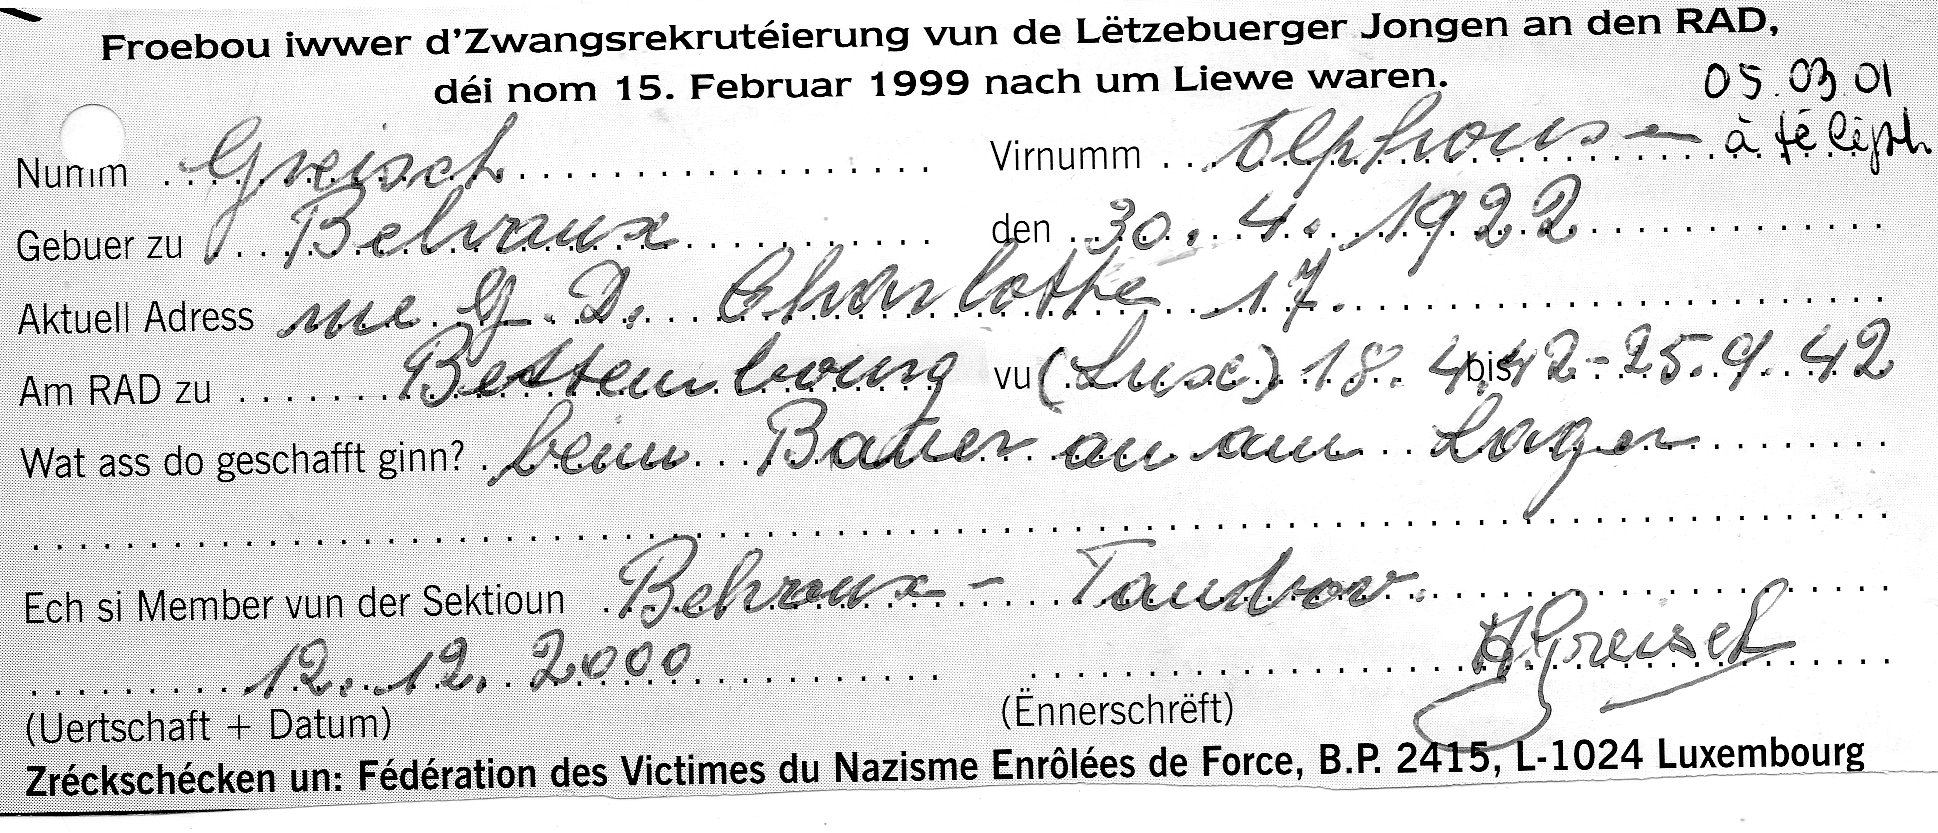 Froebou iwwer d'Zwangsrekrutéierung vun de Lëtzebuerger Jongen an den RAD,
déi nom 15. Februar 1999 nach um Liewe waren.
05.03 01
à téléph
Numm Greisch Virnumm Alphonse
Gebuer zu Belvaux den 30. 4. 1922
Aktuell Adress rue G. D. Charlotte 17.
Am RAD zu Bettembourg vu (Lux) 18. 4. bis 42 - 25. 9. 42
Wat ass do geschafft ginn? beim Bauer an am Lager
Ech si Member vun der Sektioun Belvaux -
12. 12. 2000 A. Greisch
(Uertschaft + Datum) (Ënnerschrëft)
Zréckschécken un: Fédération des Victimes du Nazisme Enrôlées de Force, B.P. 2415, L-1024 Luxembourg